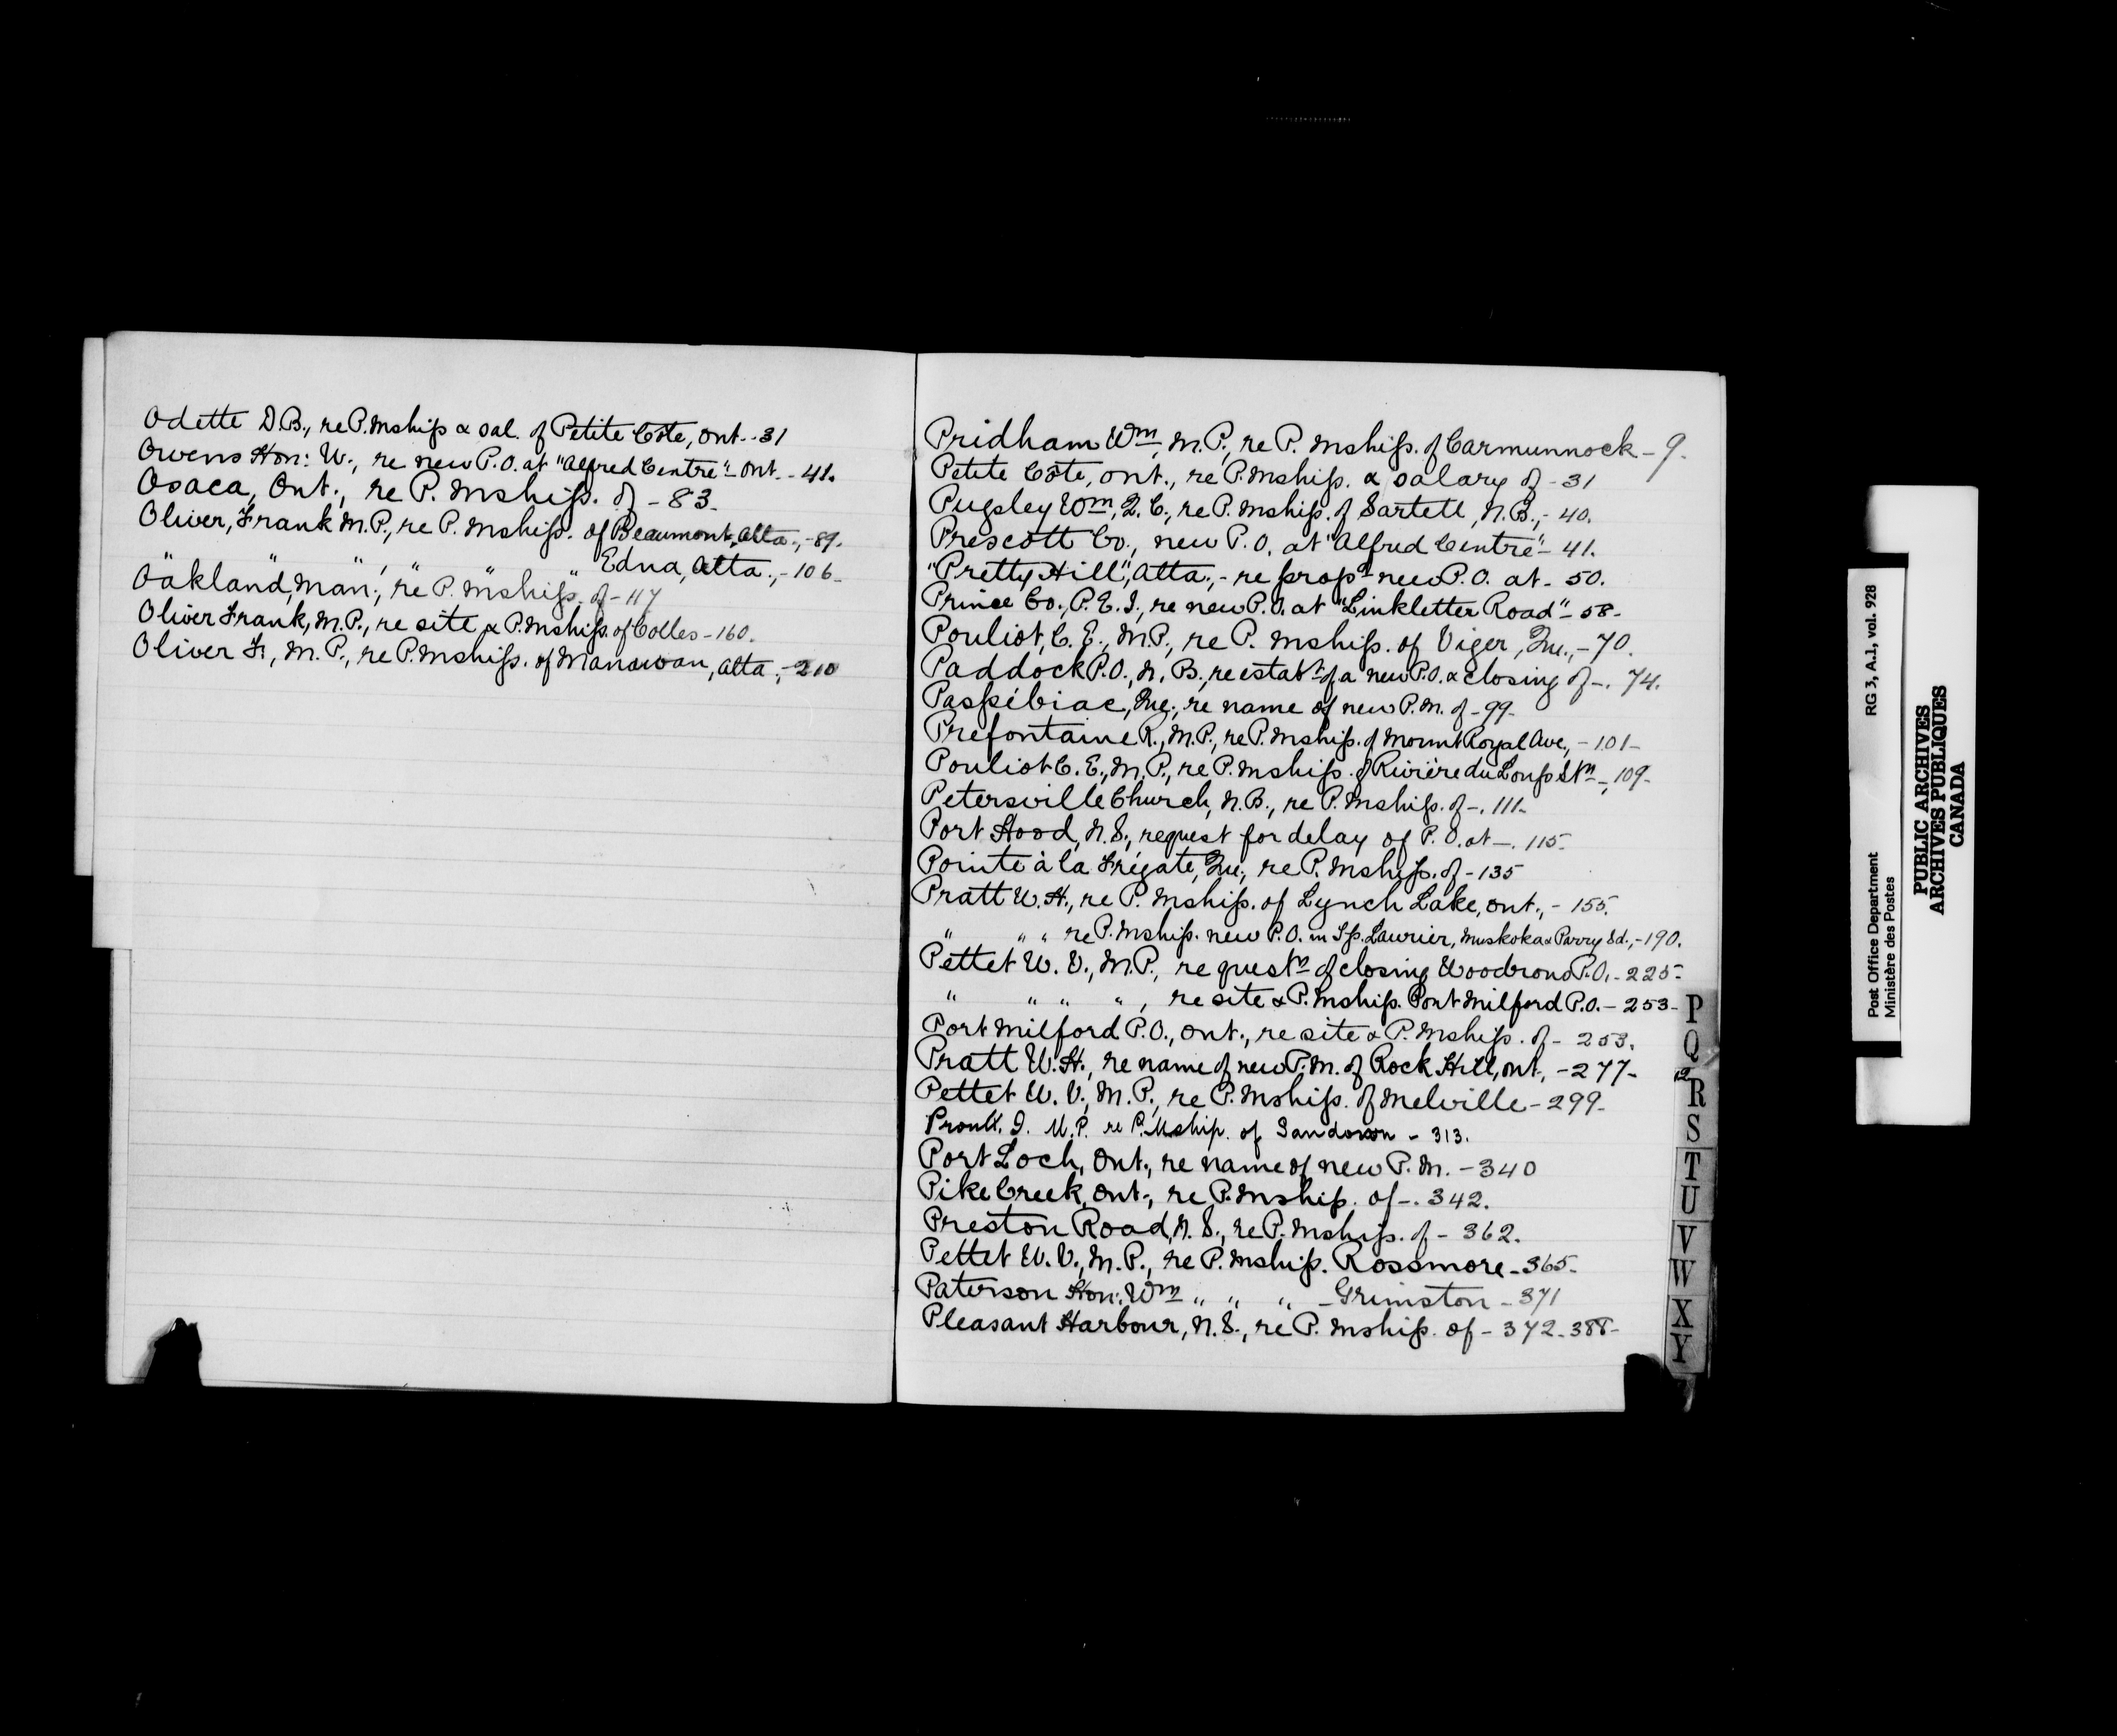 Odette D.B., re P.Mship & sal. of Petite Côte, Ont. - 31
Owens Hon: W., re new P.O. at "Alfred Centre" - Ont. - 41.
Osaca, Ont., re P. Mship. of - 83.
Oliver, Frank M.P., re P. Mship. of Beaumont, Alta., - 89.
" " " " " " Edna, Alta., - 106 -
Oakland, Man., re P. Mship. of - 117
Oliver Frank, M.P., re site & P.Mship. of Colles - 160.
Oliver Fr., M.P., re P.Mship. of Manawan, Alta., - 210
Pridham Wm, M.P., re P. Mship. of Carmunnock - 9.
Petite Côte, Ont., re P.Mship. & salary of - 31
Pugsley Wm, Q.C., re P.Mship. of Sartell, N.B., - 40.
Prescott Co., new P.O. at "Alfred Centre" - 41.
"Pretty Hill", Alta., - re propd new P.O. at - 50.
Prince Co., P.E.I., re new P.O. at "Linkletter Road" - 58 -
Pouliot, C.E., M.P., re P. Mship. of Viger, Que., - 70.
Paddock P.O., N.B., re estabt of a new P.O. & closing of -. 74.
Paspébiac, Que., re name of new P.M. of - 99 -
Prefontaine R., M.P., re P.Mship. of Mount Royal Ave., - 101 -
Pouliot C.E., M.P., re P.Mship. of Rivière du Loup Stn -, 109 -
Petersville Church, N.B., re P.Mship. of -. 111 -
Port Hood, N.S., request for delay of P.O. at -. 115 -
Pointe à la Frégate, Que., re P.Mship. of - 135
Pratt W.H., re P. Mship. of Lynch Lake, Ont., - 155.
" " " re P.Mship. new P.O. in Tp. Laurier, Muskoka & Parry Sd., - 190.
Pettet W.V., M.P., re questn of closing Woodrous P.O. - 225 -
" " " " , re site & P.Mship. Port Milford P.O. - 253 -
Port Milford P.O., Ont., re site & P.Mship. of - 253.
Pratt W.H., re name of new P.M. of Rock Hill, Ont., - 277 -
Pettet W.V., M.P., re P.Mship. of Melville - 299 -
Proulx. I. M.P. re P.Mship. of Sandown - 313.
Port Loch, Ont., re name of new P.M. - 340
Pike Creek, Ont., re P.Mship. of -. 342.
Preston Road, N.S., re P.Mship. of - 362.
Pettet W.V., M.P., re P.Mship. Rossmore - 365 -
Paterson Hon: Wm " " " - Grimston - 371
Pleasant Harbour, N.S., re P. Mship. of - 372 - 388 -
P
Q
R
S
T
U
V
W
X
Y
Post Office Department RG 3, A.1, vol. 928
Ministère des Postes
PUBLIC ARCHIVES
ARCHIVES PUBLIQUES
CANADA